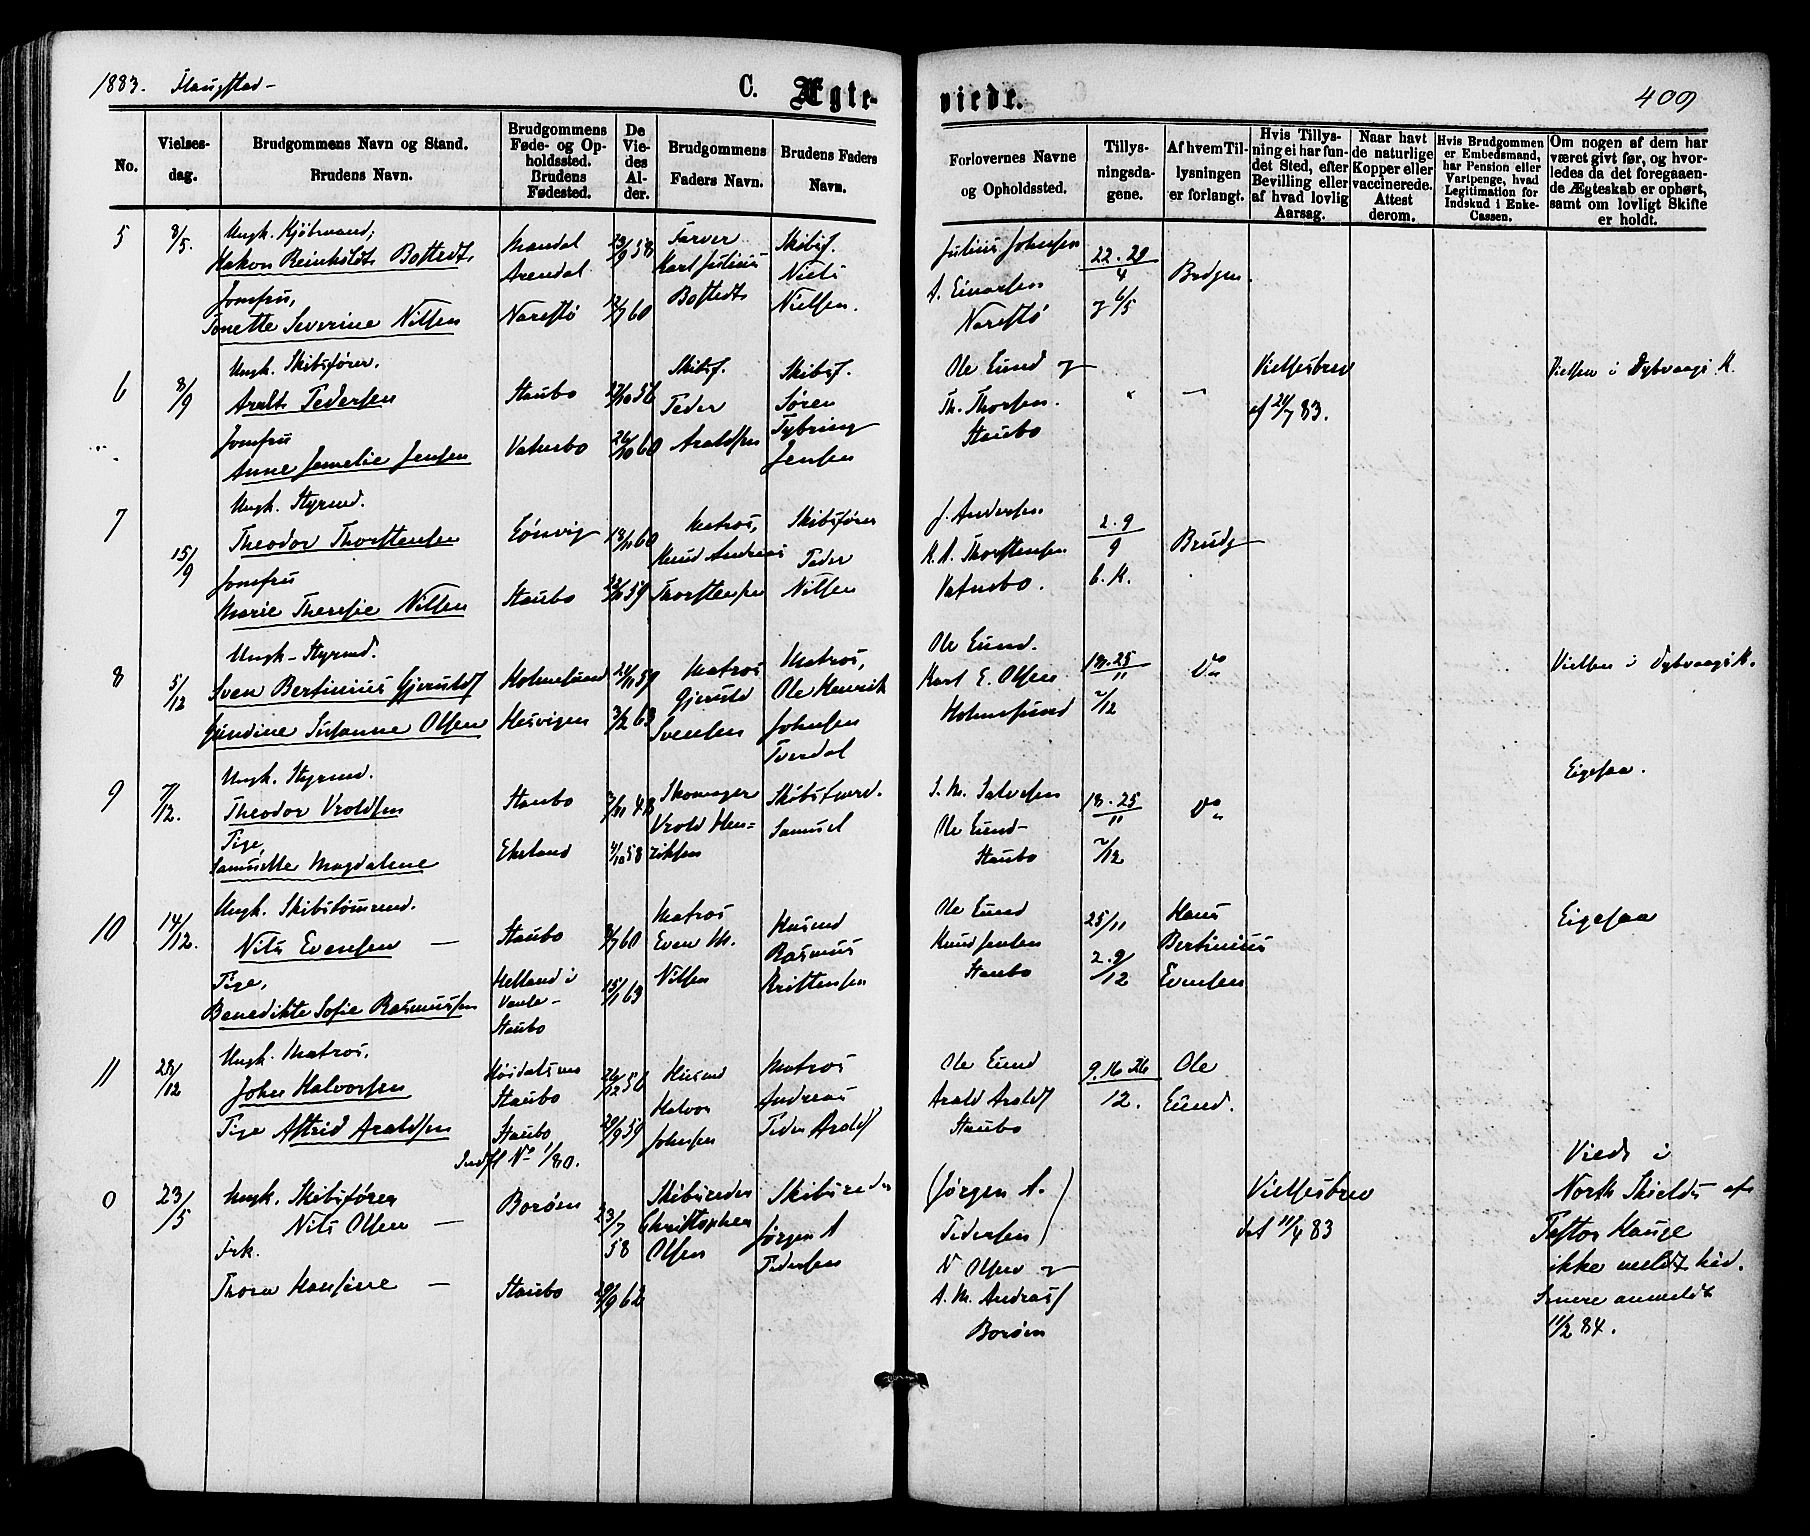 1883. Flangstad-
C. Ægte-
viede.
409
No.
Vielses-
dag.
Brudgommens Navn og Stand.
Brudens Navn.
Brudgommens
Føde- og Op-
holdssted.
Brudens
Fødested.
De
Vie-
des
Al-
der.
Brudgommens
Faders Navn.
Brudens Faders
Navn.
Forlovernes Navne
og Opholdssted.
Tillys-
ningsda-
gene.
Af hvem Til-
lysningen
er forlangt.
Hvis Tillys-
ning ei har fun-
det Sted, efter
Bevilling eller
af hvad lovlig
Aarsag.
Naar havt
de naturlige
Kopper eller
vaccinerede.
Attest
derom.
Hvis Brudgommen
er Embedsmand,
har Pension eller
Vartpenge, hvad
Legitimation for
Indskud i Enke-
Cassen.
Om nogen af dem har
været givt før, og hvor-
ledes da det foregaaen-
de Ægteskab er ophørt,
samt om lovligt Skifte
er holdt.
5
8/5.
Ungk. Kjøbmand,
Hakon Reinholdt Bostedt,
Jomfru,
Tonette Severine Nilsen
Mandal
Arendal
Narestø
23/9 58
12/7 60
Farver
Karl Julius
Bostedt
Skibsf.
Niels
Nielsen.
Julius Johnsen
A. Einarsen
Narestø
22. 29
4
6/5
Brdgm.
6
8/9
Ungk. Skibsfører.
Aralt Pedersen
Jomfru
Anne Jamelie Jensen
Staubo
Vatnebo
26/10 60
Skibsf.
Peder
Araldsen
Skibsf.
Søren
Tybring
Jensen
Ole Eund og
Th. Thorsen.
Staubo
Vielsesbrev
af 21/7 83.
Vielsen i Dybvaags K.
7
15/9
Ungk. Styrmd.
Theodor Thorstensen
Jomfru
Marie Theresie Nilsen
Lønvig
Staubo
18/11 60
Matros,
Knud Andreas
Thorstensen
Skibsfører
Peder
Nilsen
J. Andersen
K. A. Thorstensen
Vatnebo.
2. 9
9
Brudg
8
5/12
Ungk- Styrmd.
Sven Bertinius Gjeruldsf
Gundine Susanne Olsen
Holmesund
Hesvigen
21/11 59
3/2 63
Matros
Gjeruld
Svensen
Matros,
Ole Henrik
Johnsen
Tverdal
Ole Eund.
Karl E. Olsen
Holmesund
18. 25
11
2/12
Do
Vielsen i Dybvaags K.
9
7/12.
Ungk. Styrmd.
Theodor Vroldsen
Pige,
Samuelle Magdalene
Staubo
Ekeland
3/11 48
4/10 58
Skomager
Vrold Hen-
riksen
Skibstømrd.
Samuel
S. M. Salvesen
Ole Eund-
Staubo
18. 25
11
2/12
Do
Eigesaa.
10
14/12.
Ungk. Skibstømmd.
Nils Evensen —
Pige,
Benedikte Sofie Rasmussen
Staubo
Helland i
Staubo
3/7 60
15/1 63
Matros
Even M.
Nilsen
Husmd
Rasmus
Kristensen
Ole Eund
Knud Jensen
Staubo
25/11
2. 9
12
Hans
Bertinius
Evensen
Eigesaa
11
28/12
Ungk. Matros,
John Halvorsen
Pige Astrid Araldsen
Staubo
Staubo
Indfl No 1/80.
26/12 50
29/9 59
Husmd
Halvor
Johnsen
Matros
Andreas
Peder Araldsf
Ole Eund
Arald Araldsf
Staubo
9. 16 26
12.
Ole
Eund.
0
23/5
Ungk. Skibsfører
Nils Olsen —
Frk.
Thora Hansine —
Borøen
Staubo
23/7
58
29/9 62
Skibsreder
Christopher
Olsen
Skibsreder
Jørgen A
Pedersen
(Jørgen A.
Pedersen)
N Olsen og
A. M. Andreas/
Borøen
Vielsesbrev
dat 11/4 83
Viede i
North Shields af
Pastor Hauge
ikke meldt hid.
Senere anmeldt
11/2 84.